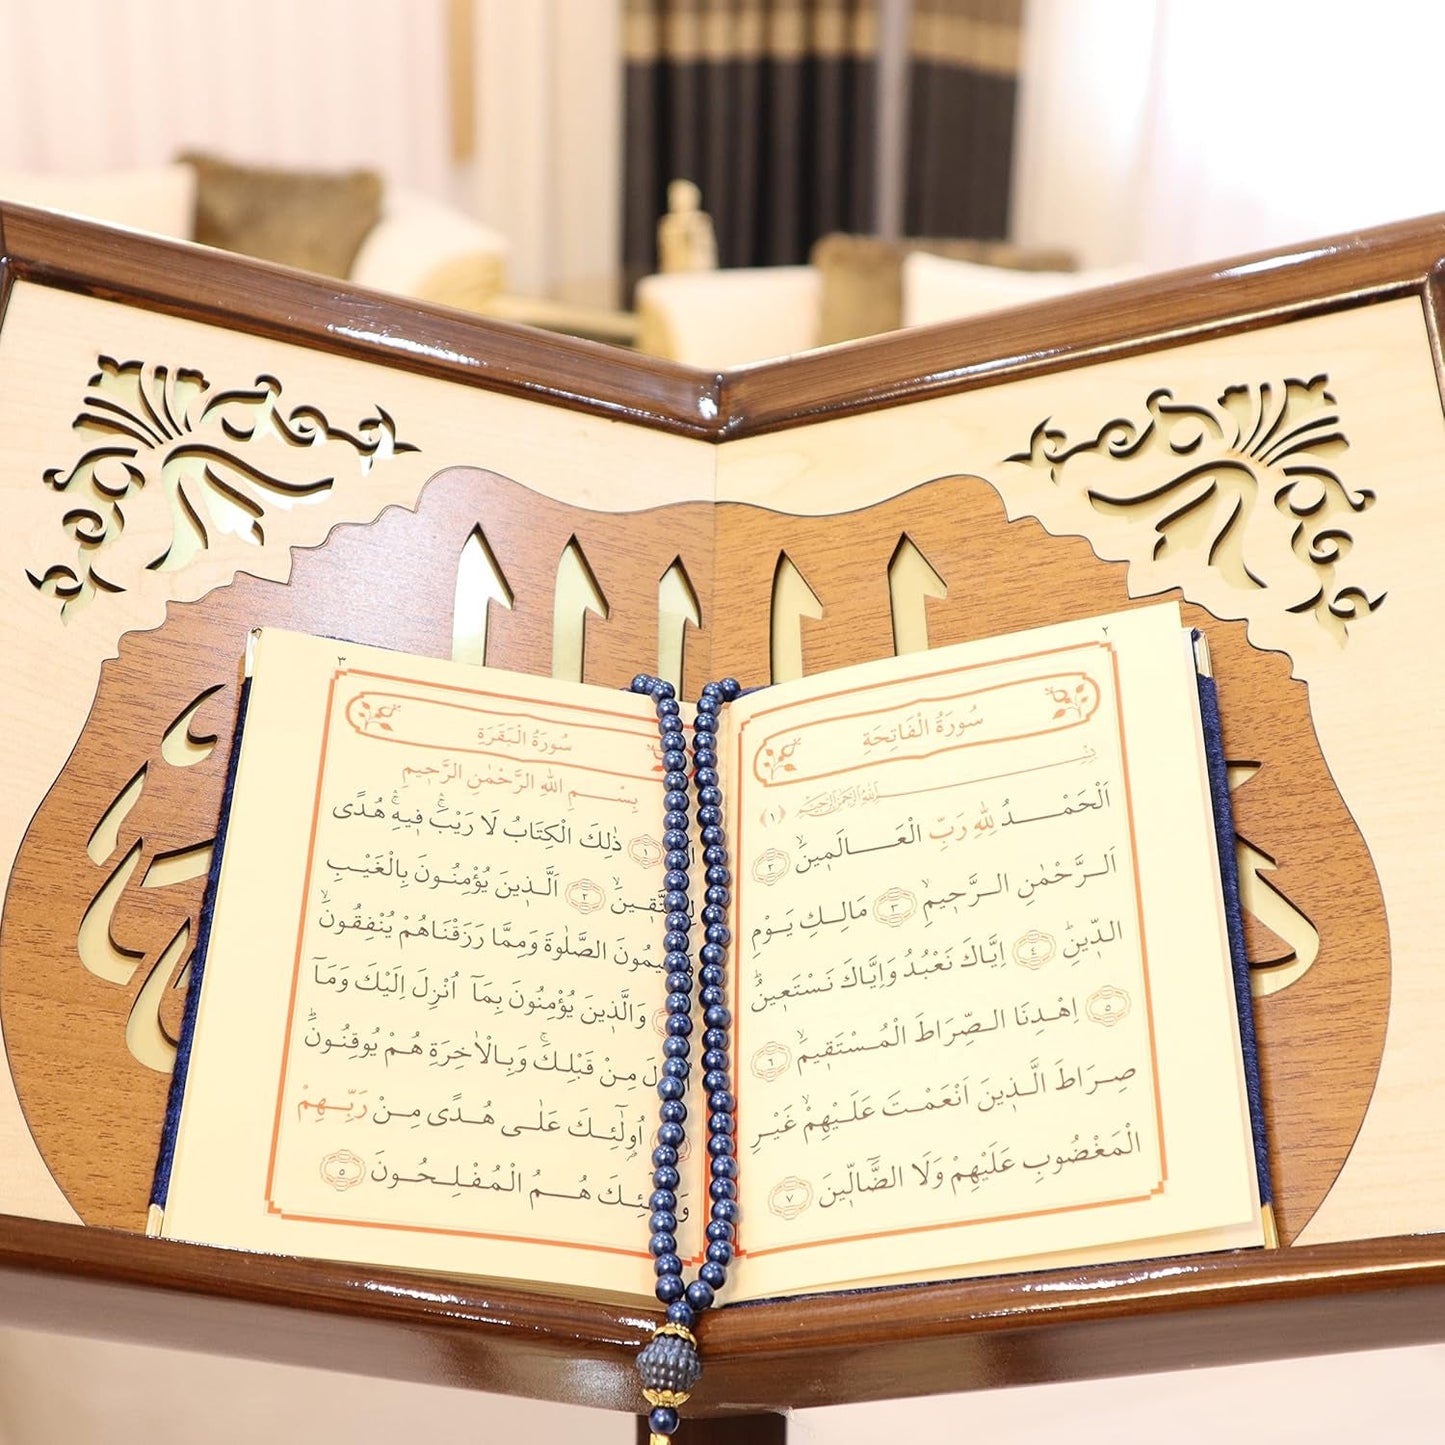 ٢
سُورَةُ الْفَاتِحَةِ
بِسْــــمِ اللّٰهِ الرَّحْمٰنِ الرَّحِيمِ ﴿١﴾
اَلْحَمْـــدُ لِلّٰهِ رَبِّ الْعَـــالَمٖينَۙ ٢
اَلرَّحْمٰنِ الـرَّحٖيمِۙ ٣ مَالِـكِ يَـوْمِ
الدّٖينِؕ ٤ اِيَّاكَ نَعْبُدُ وَاِيَّاكَ نَسْتَعٖينُؕ
٥ اِهْـدِنَا الـصِّرَاطَ الْمُـسْتَقٖيمَۙ ٦
صِـرَاطَ الَّـذٖينَ اَنْعَمْـتَ عَلَـيْهِمْۙ غَيْـرِ
الْمَغْضُوبِ عَلَيْهِمْ وَلَا الضَّٓالّٖينَ ٧
٣
سُورَةُ الْبَقَرَةِ
بِسْــــمِ اللّٰهِ الرَّحْمٰنِ الرَّحٖيمِ
١ ذٰلِكَ الْكِتَابُ لَا رَيْبَۚ فٖيهِۚ هُدًى
٢ اَلَّـذٖينَ يُؤْمِنُـونَ بِالْغَيْـبِ
الصَّلٰوةَ وَمِمَّا رَزَقْنَاهُمْ يُنْفِقُونَۙ
وَالَّذٖينَ يُؤْمِنُونَ بِمَٓا اُنْزِلَ اِلَيْكَ وَمَٓا
مِـنْ قَبْلِـكَۚ وَبِـالْاٰخِرَةِ هُـمْ يُوقِنُـونَؕ
اُو۬لٰٓئِـكَ عَلٰـى هُـدًى مِـنْ رَبِّـــهِمْ
هُـــمُ الْمُفْـلِـحُـونَ ٥